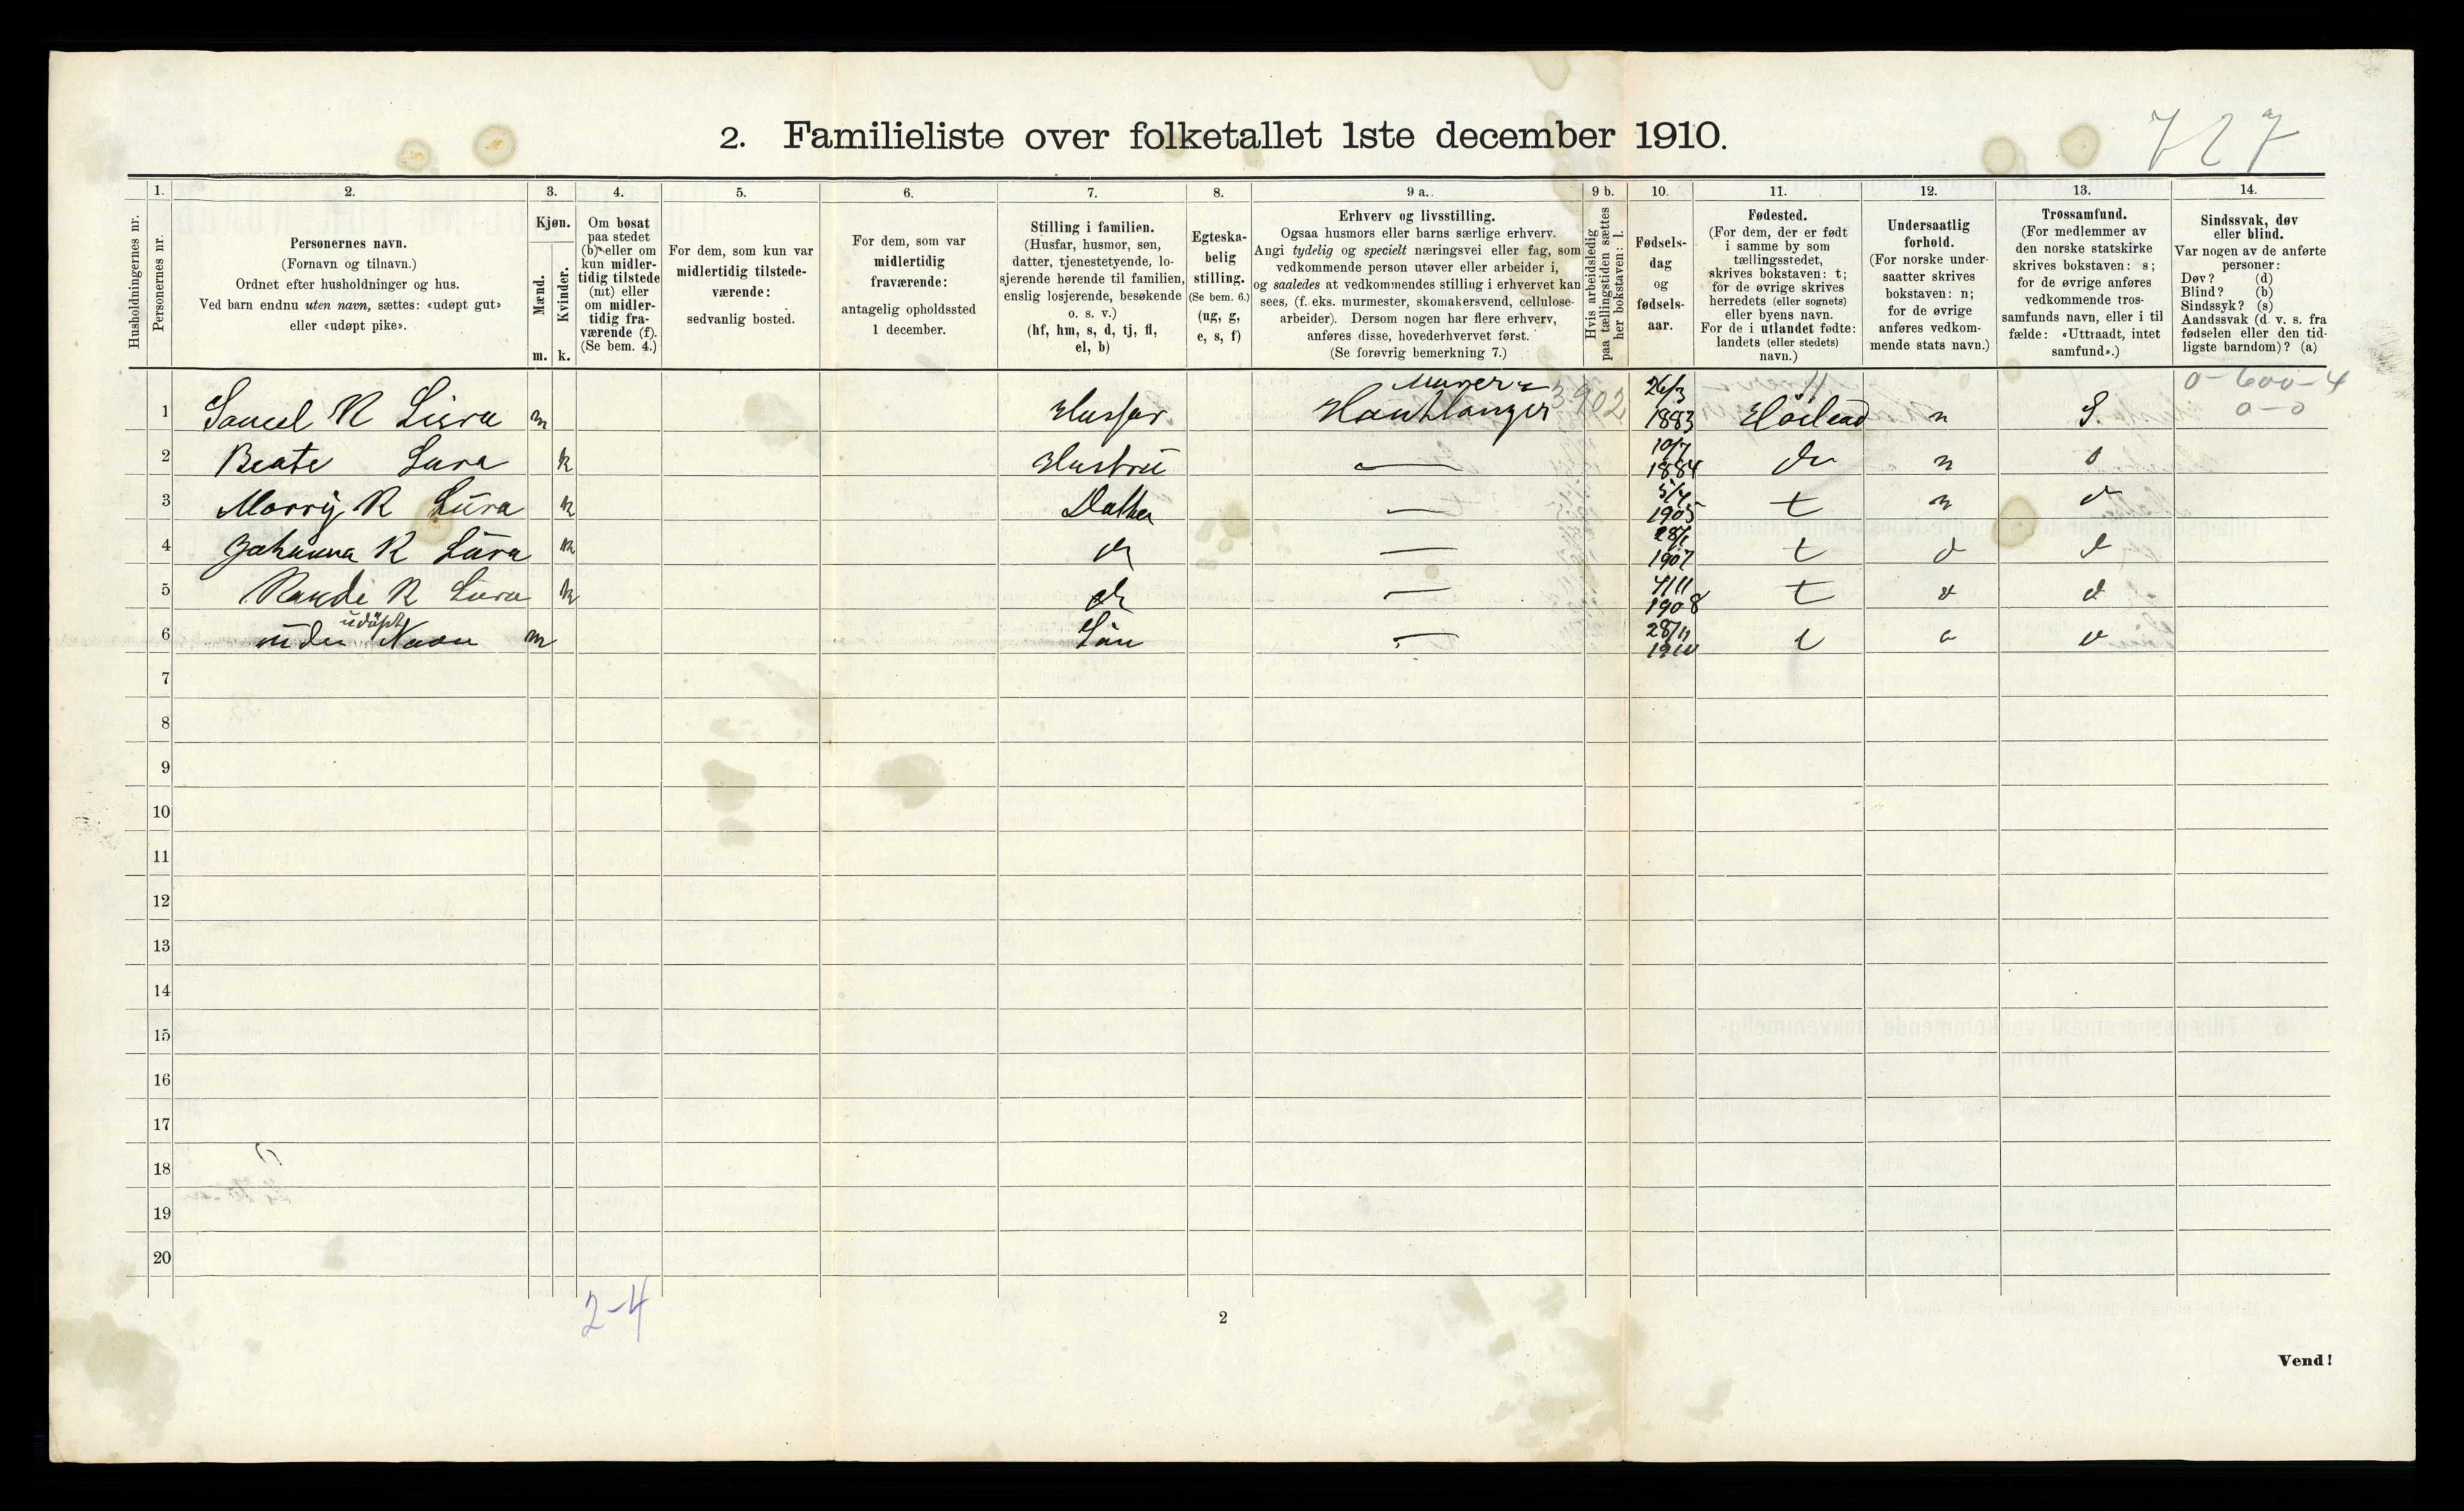 2. Familieliste over folketallet 1ste december 1910.
727
Husholdningernes nr.
1. Personernes nr.
2. Personernes navn.
(Fornavn og tilnavn.)
Ordnet efter husholdninger og hus.
Ved barn endnu uten navn, sættes: «udøpt gut»
eller «udøpt pike».
3. Kjøn.
Mænd. Kvinder.
m. k.
4. Om bosat
paa stedet
(b) eller om
kun midler-
tidig tilstede
(mt) eller
om midler-
tidig fra-
værende (f).
(Se bem. 4.)
5. For dem, som kun var
midlertidig tilstede-
værende:
sedvanlig bosted.
6. For dem, som var
midlertidig
fraværende:
antagelig opholdssted
1 december.
7. Stilling i familien.
(Husfar, husmor, søn,
datter, tjenestetyende, lo-
sjerende hørende til familien,
enslig losjerende, besøkende
o. s. v.)
(hf, hm, s, d, tj, fl,
el, b)
8. Egteska-
belig
stilling.
(Se bem. 6.)
(ug, g,
e, s, f)
9 a. Erhverv og livsstilling.
Ogsaa husmors eller barns særlige erhverv.
Angi tydelig og specielt næringsvei eller fag, som
vedkommende person utøver eller arbeider i,
og saaledes at vedkommendes stilling i erhvervet kan
sees, (f. eks. murmester, skomakersvend, cellulose-
arbeider). Dersom nogen har flere erhverv,
anføres disse, hovederhvervet først.
(Se forøvrig bemerkning 7.)
9 b. Hvis arbeidsledig
paa tællingstiden sættes
her bokstaven: l.
10. Fødsels-
dag
og
fødsels-
aar.
11. Fødested.
(For dem, der er født
i samme by som
tællingsstedet,
skrives bokstaven: t;
for de øvrige skrives
herredets (eller sognets)
eller byens navn.
For de i utlandet fødte:
landets (eller stedets)
navn.)
12. Undersaatlig
forhold.
(For norske under-
saatter skrives
bokstaven: n;
for de øvrige
anføres vedkom-
mende stats navn.)
13. Trossamfund.
(For medlemmer av
den norske statskirke
skrives bokstaven: s;
for de øvrige anføres
vedkommende tros-
samfunds navn, eller i til
fælde: «Uttraadt, intet
samfund».)
14. Sindssvak, døv
eller blind.
Var nogen av de anførte
personer:
Døv? (d)
Blind? (b)
Sindssyk? (s)
Aandssvak (d. v. s. fra
fødselen eller den tid-
ligste barndom)? (a)
1 m Husfar 3902 26/3 1883 n S. 0-600-4 0-0
2 Beate Lura k Hustru — 10/7 1884 n s
3 R Lura k — 1905 t n
4 Johanna R Lura k — 1907 t
5 R Lura k — 4/11 1908 t
6 udøpt Navn m — 28/11 1910 t
7
8
9
10
11
12
13
14
15
16
17
18
19
20
2-4
2
Vend!